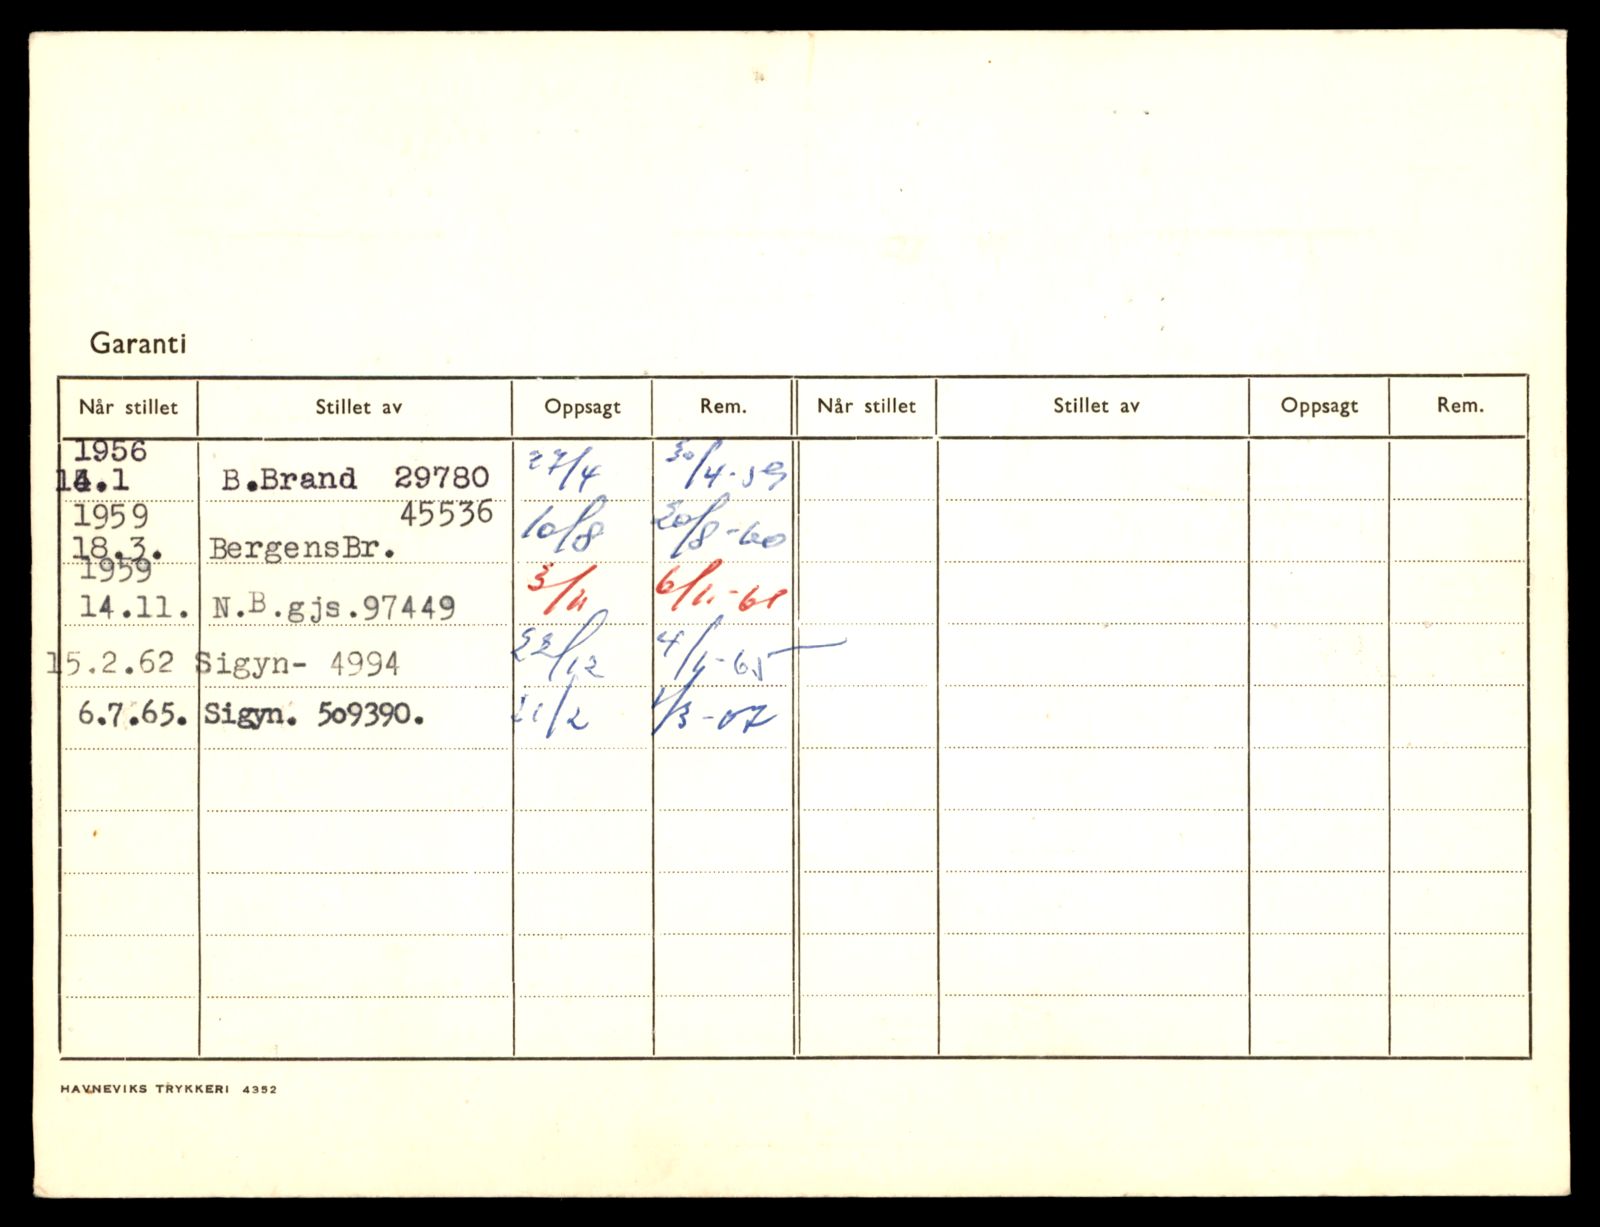 Garanti
Når stillet Stillet av Oppsagt Rem. Når stillet Stillet av Oppsagt Rem.
1956
.1 B.Brand 29780 27/4 30/4-59
1959 45536
18.3. BergensBr. 10/8 20/8-60
1959
14.11. N.B.gjs.97449 3/11 6/11-61
15.2.62 Sigyn- 4994 22/12 4/1-65
6.7.65. Sigyn. 509390. 21/2 1/3-67
HAVNEVIKS TRYKKERI 4352